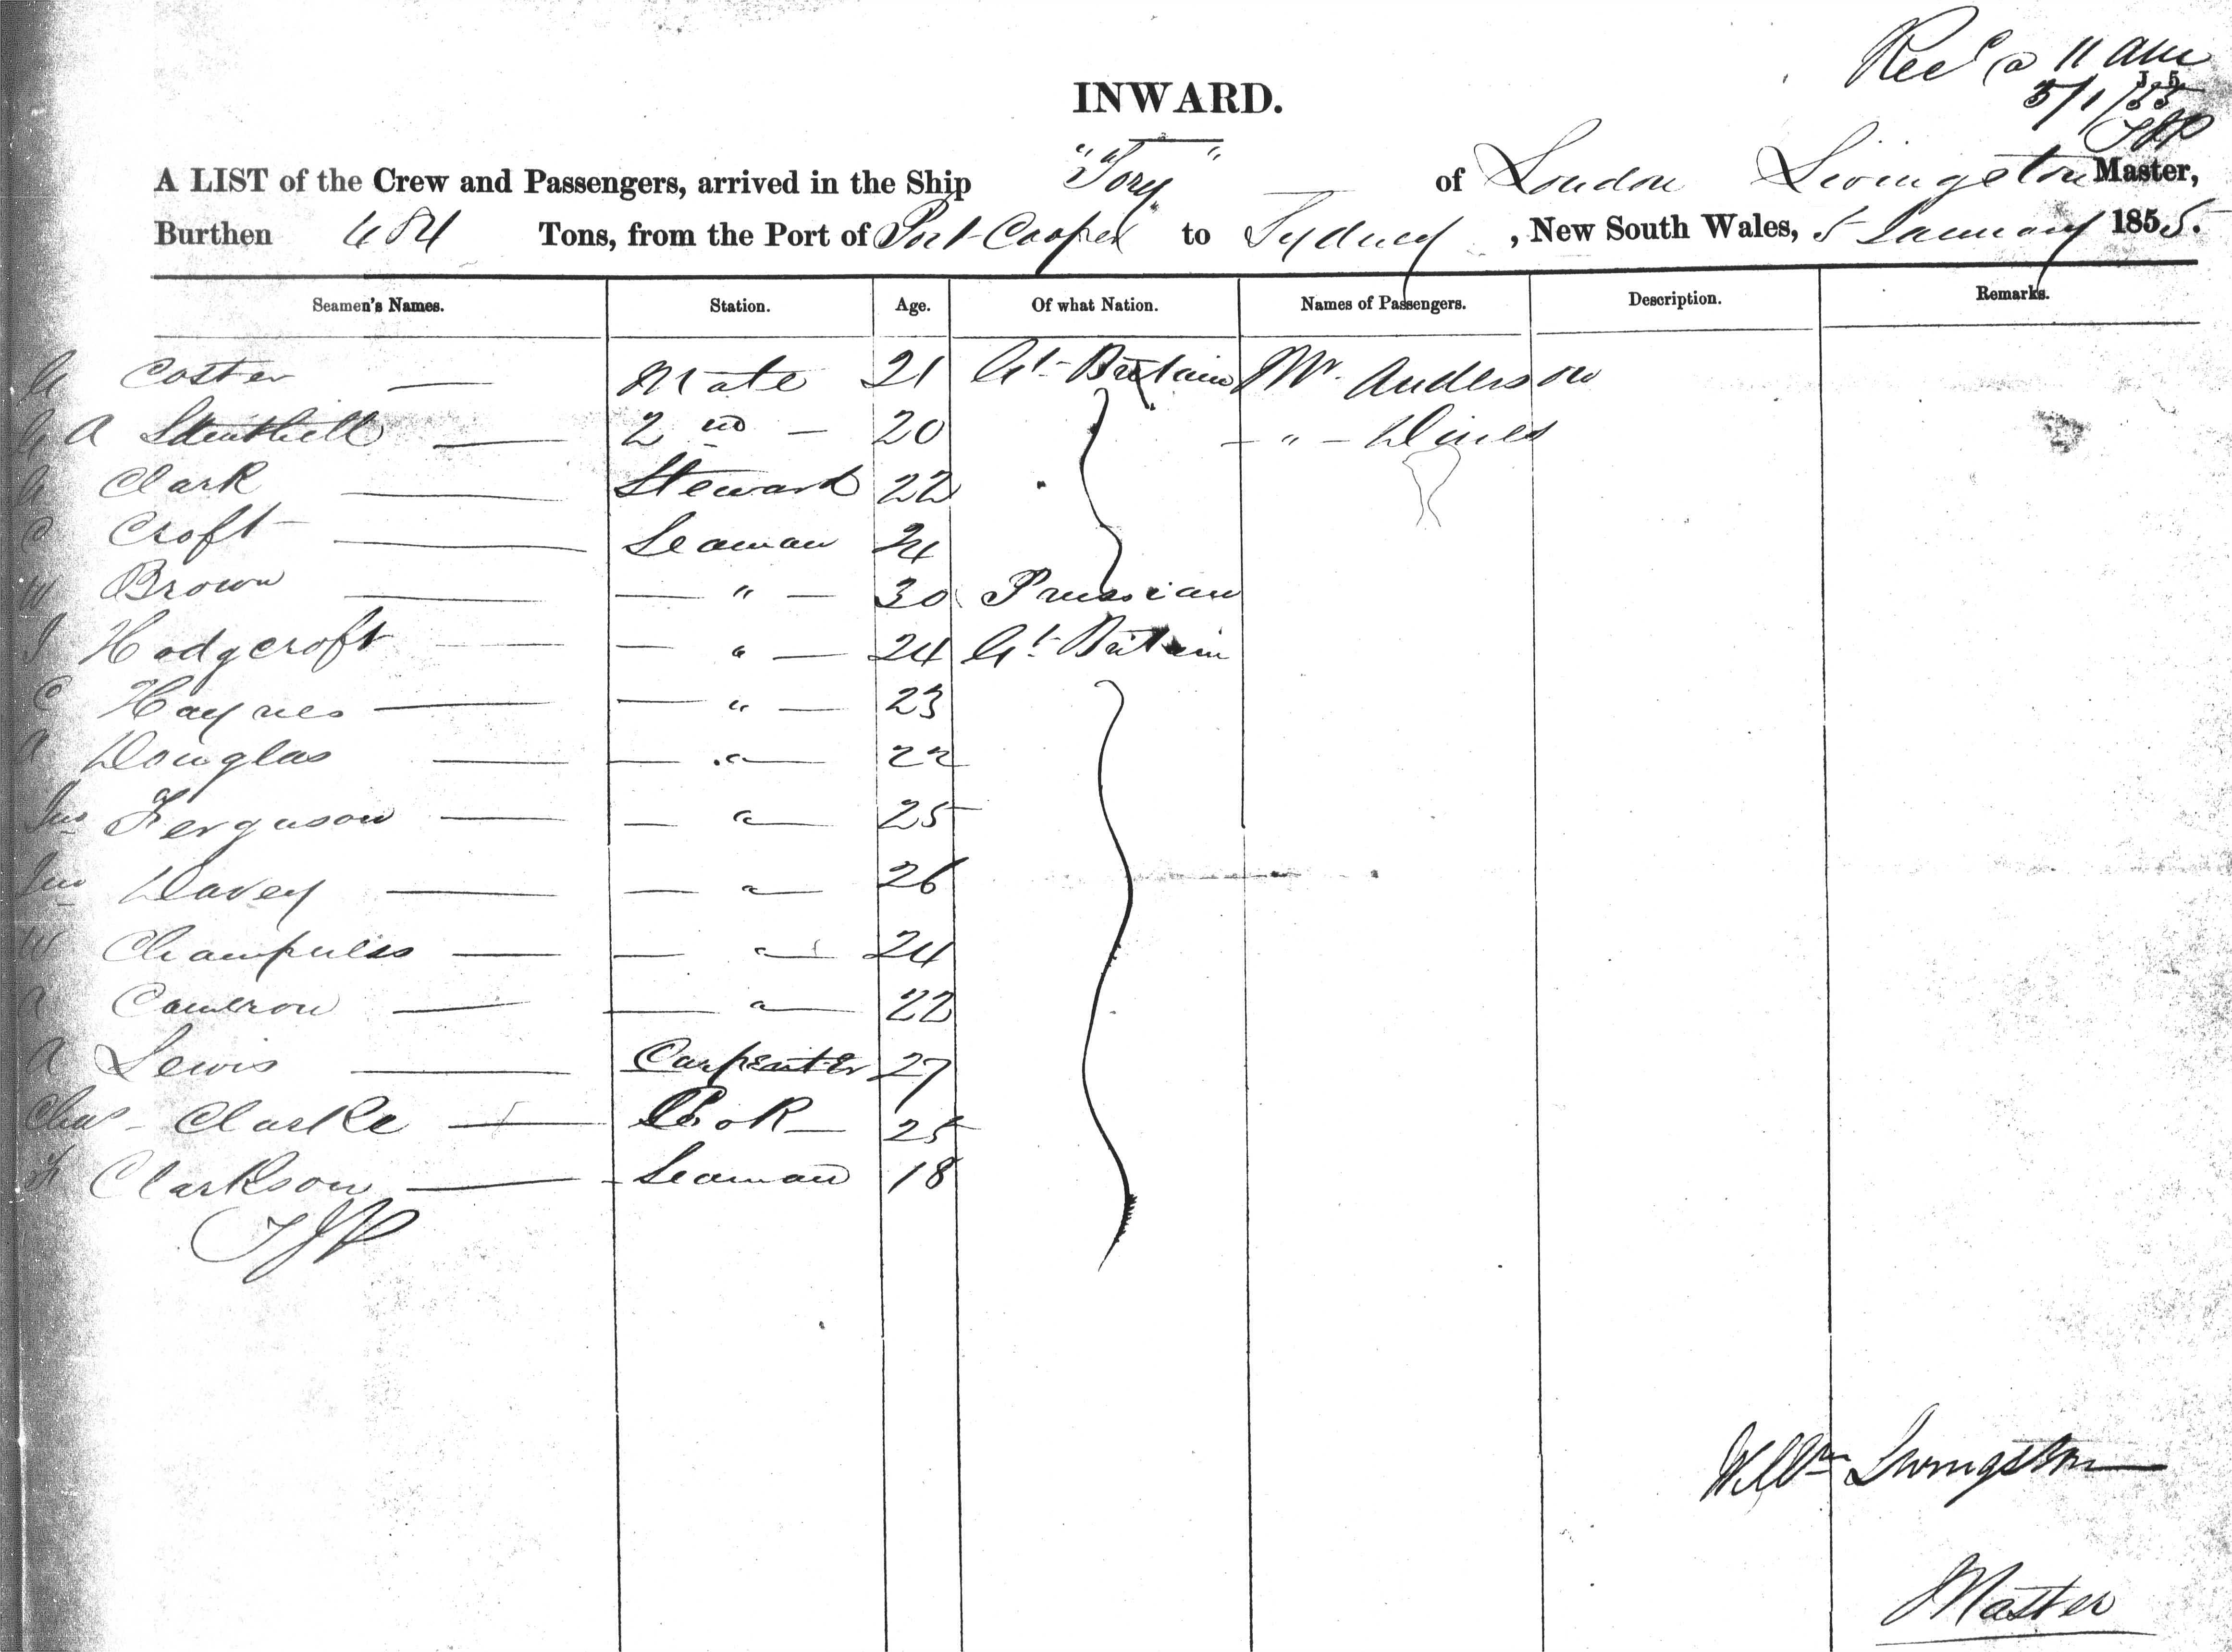 Recd @ 11 am
5/1/55
INWARD.
A LIST of the Crew and Passengers, arrived in the Ship "Tory" of London Livingston Master,
Burthen 484 Tons, from the Port of Port Cooper to Sydney, New South Wales, 5 January 1855.
Seamen's Names. Station. Age. Of what Nation. Names of Passengers. Description. Remarks.
G Coster — Mate 21 Gt Britain Mr. Anderson
G A — 2nd — 20 — " — Dines
G Clark — Steward 22
Croft — Seaman 24
W Brown — — " — 30 Prussian
J Hodgcroft — — " — 24 Gt Britain
C Haynes — — " — 23
A Douglas — — " — 22
Jno Ferguson — — " — 25
Jno Davey — — " — 26
W Champness — — " — 24
A Cameron — — " — 22
A Lewis — Carpenter 27
Chas Clarke — Cook — 25
Clarkson — Seaman 18
Willm Livingston
Master